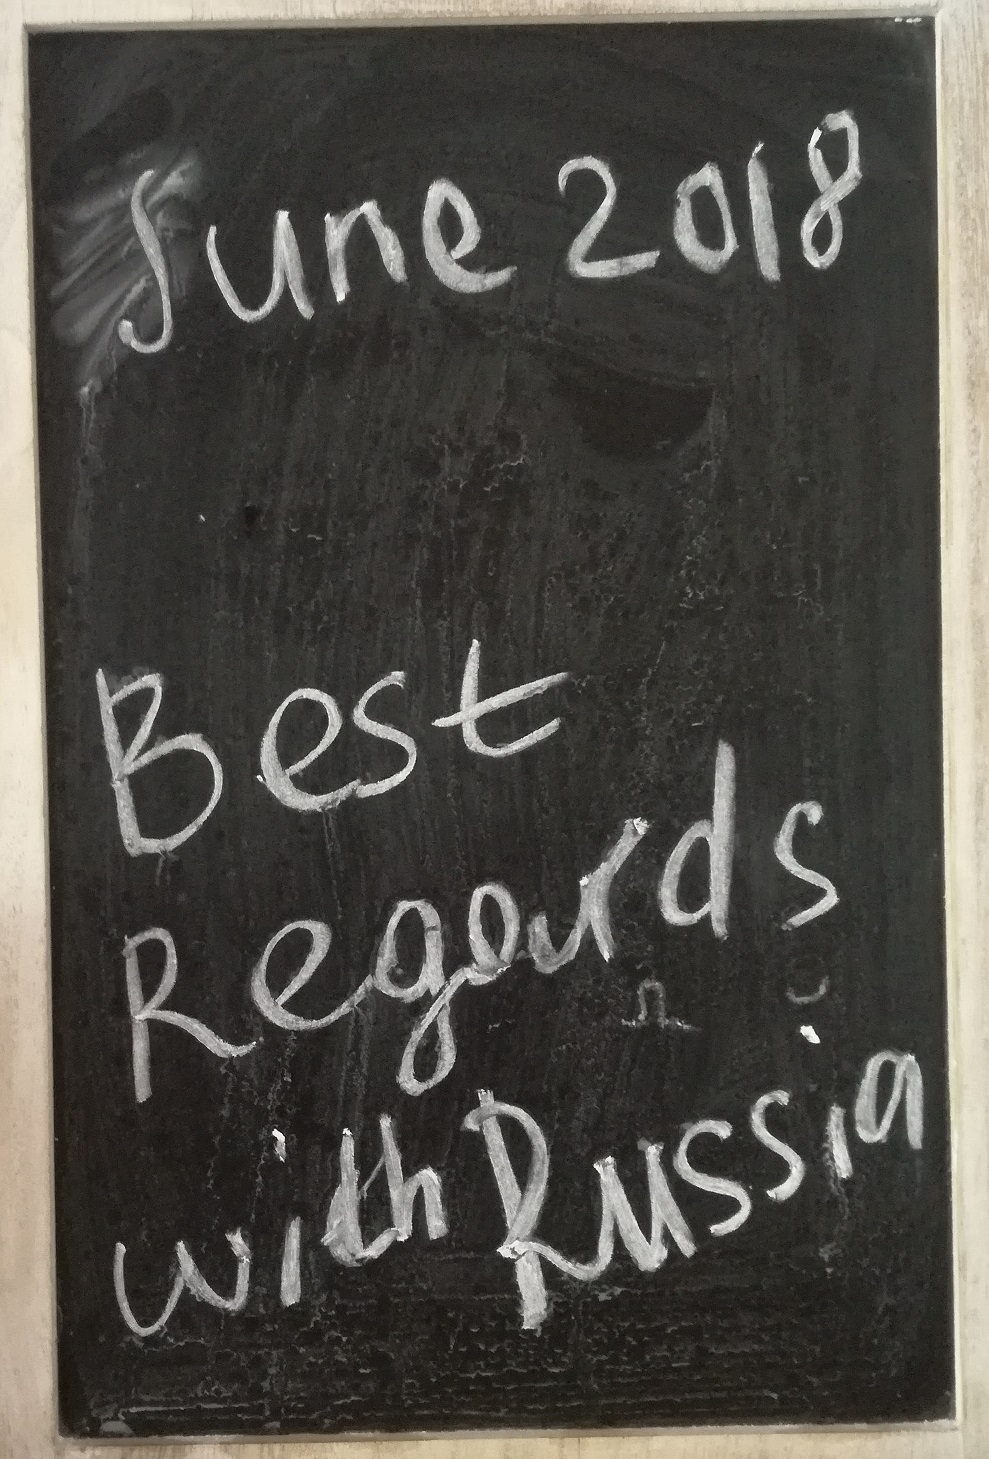 June 2018
Best
Regards
with Russia